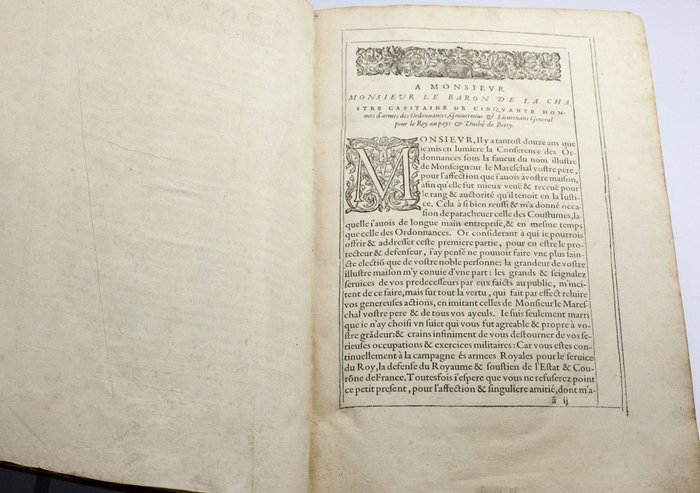 A MONSIEVR
MONSIEVR LE BARON DE LA CHA
STRE CAPITAINE DE CINQVANTE HOM-
mes d'armes des Ordonnances, Gouuerneur & Lieutenant General
pour le Roy au pays & Duché de Berry.
MONSIEVR, Il y a tantost douze ans que
ie mis en lumiere la Conference des Or-
donnances sous la faueur du nom illustre
de Monseigneur le Mareschal vostre pere,
pour l'affection que i'auois à vostre maison,
afin qu'elle fut mieux veuë & receuë pour
le rang & auctorité qu'il tenoit en la Iusti-
ce. Cela à si bien reussi & m'a donné occa-
sion de paracheuer celle des Coustumes, la-
quelle i'auois de longue main entreprise, & en mesme temps
que celle des Ordonnances. Or considerant à qui ie pourrois
offrir & addresser ceste premiere partie, pour en estre le pro-
tecteur & defenseur, i'ay pensé ne pouuoir faire vne plus sain-
cte electiō que de vostre noble personne: la grandeur de vostre
illustre maison m'y conuie d'vne part: les grands & seignalez
seruices de vos predecesseurs par eux faicts au public, m'inci-
tent de ce faire, mais sur tout la vertu, qui fait par effect reluire
vos genereuses actions, en imitant celles de Monsieur le Mares-
chal vostre pere & de tous vos ayeuls. Ie suis seulement marri
que ie n'ay choisi vn suiet qui vous fut agreable & propre à vo-
stre grādeur: & crains infiniment de vous destourner de vos se-
rieuses occupations & exercices militaires: Car vous estes con-
tinuellement à la campagne és armees Royales pour le seruice
du Roy, la defense du Royaume & soustien de l'Estat & Cou-
rōne de France. Toutesfois i'espere que vous ne refuserez point
ce petit present, pour l'affection & singuliere amitié, dont m'a-
ā ij